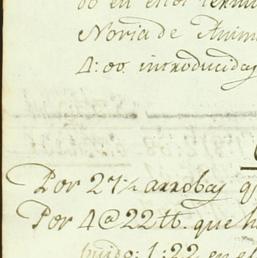 do en estos termi
Noria de Anim
4: 00 introducidas
Por 27½ arrobas q
Por 4@22 tt. que h
1:22 en el